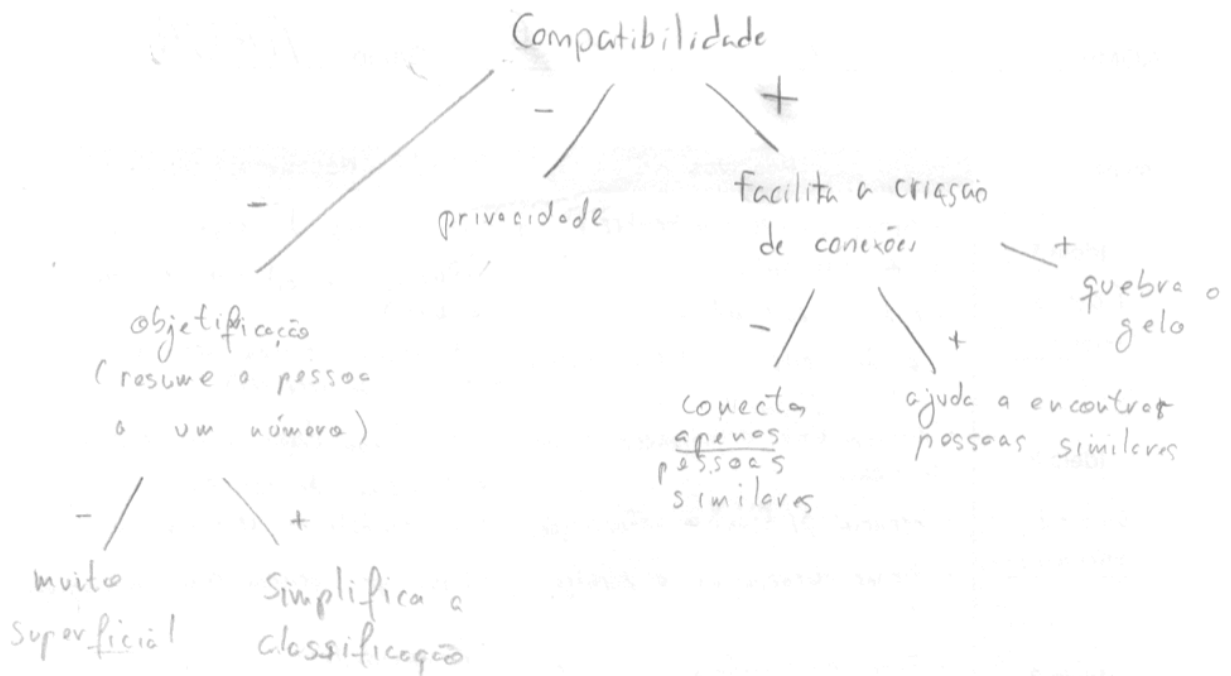 Compatibilidade
-
-
+
privacidade
facilita a criação
de conexões
+
quebra o
gelo
objetificação
(resume a pessoa
a um número)
-
+
conecta
apenas
pessoas
similares
ajuda a encontrar
pessoas similares
-
+
muito
superficial
simplifica a
classificação